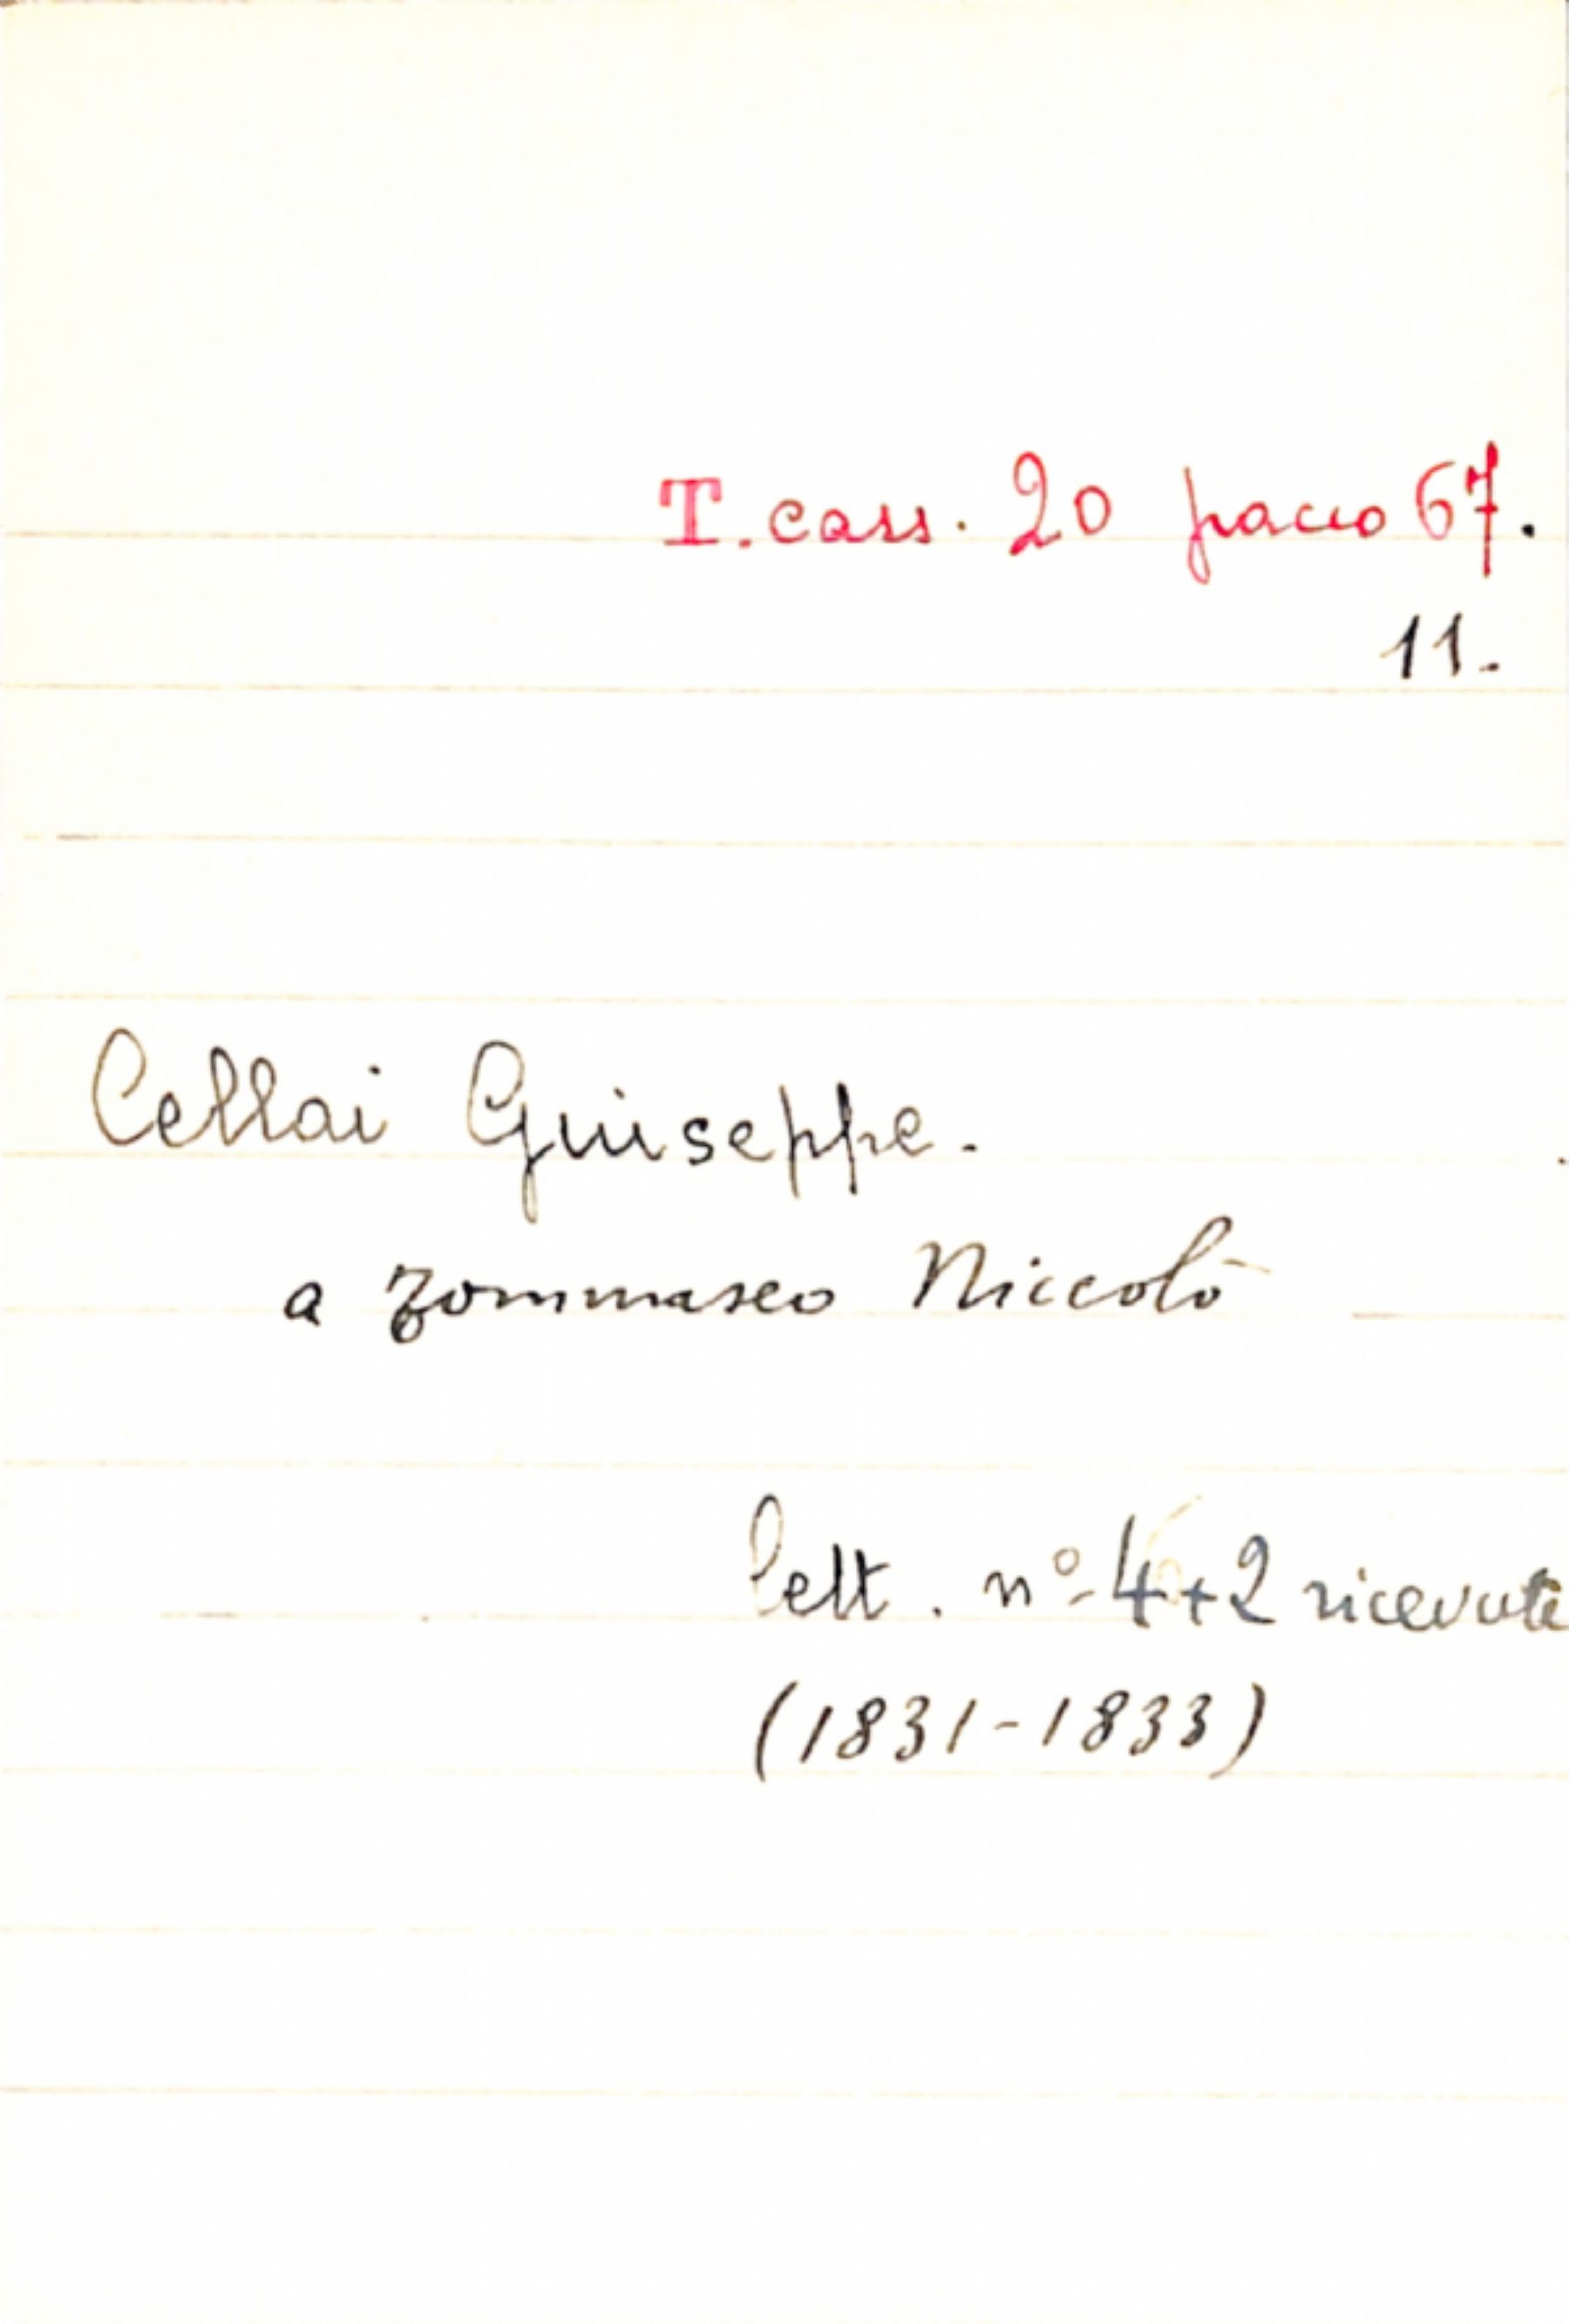 T. cass. 20 pacco 67.
11.
Cellai Giuseppe.
a Tommaseo Niccolò
lett. nº 4+2 ricevute
(1831-1833)